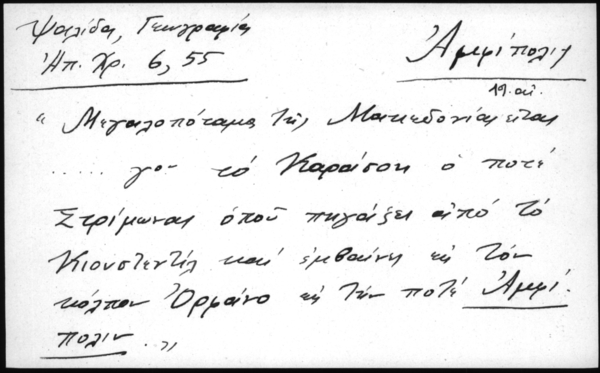 Ψαλίδα, Γεωγραφία
Ἠπ. Χρ. 6, 55
Ἀμφίπολις
19. αἰ.
"Μεγαλοπόταμα τῆς Μακεδονίας εἶναι
..... γον τό Καράσου ὁ ποτέ
Στρίμωνας ὁπού πηγάζει ἀπό τό
Κιουστεντίλ καί ἐμβαίνει εἰς τόν
κόλπον Ὀρφάνο εἰς τήν ποτέ Ἀμφί-
πολιν .."